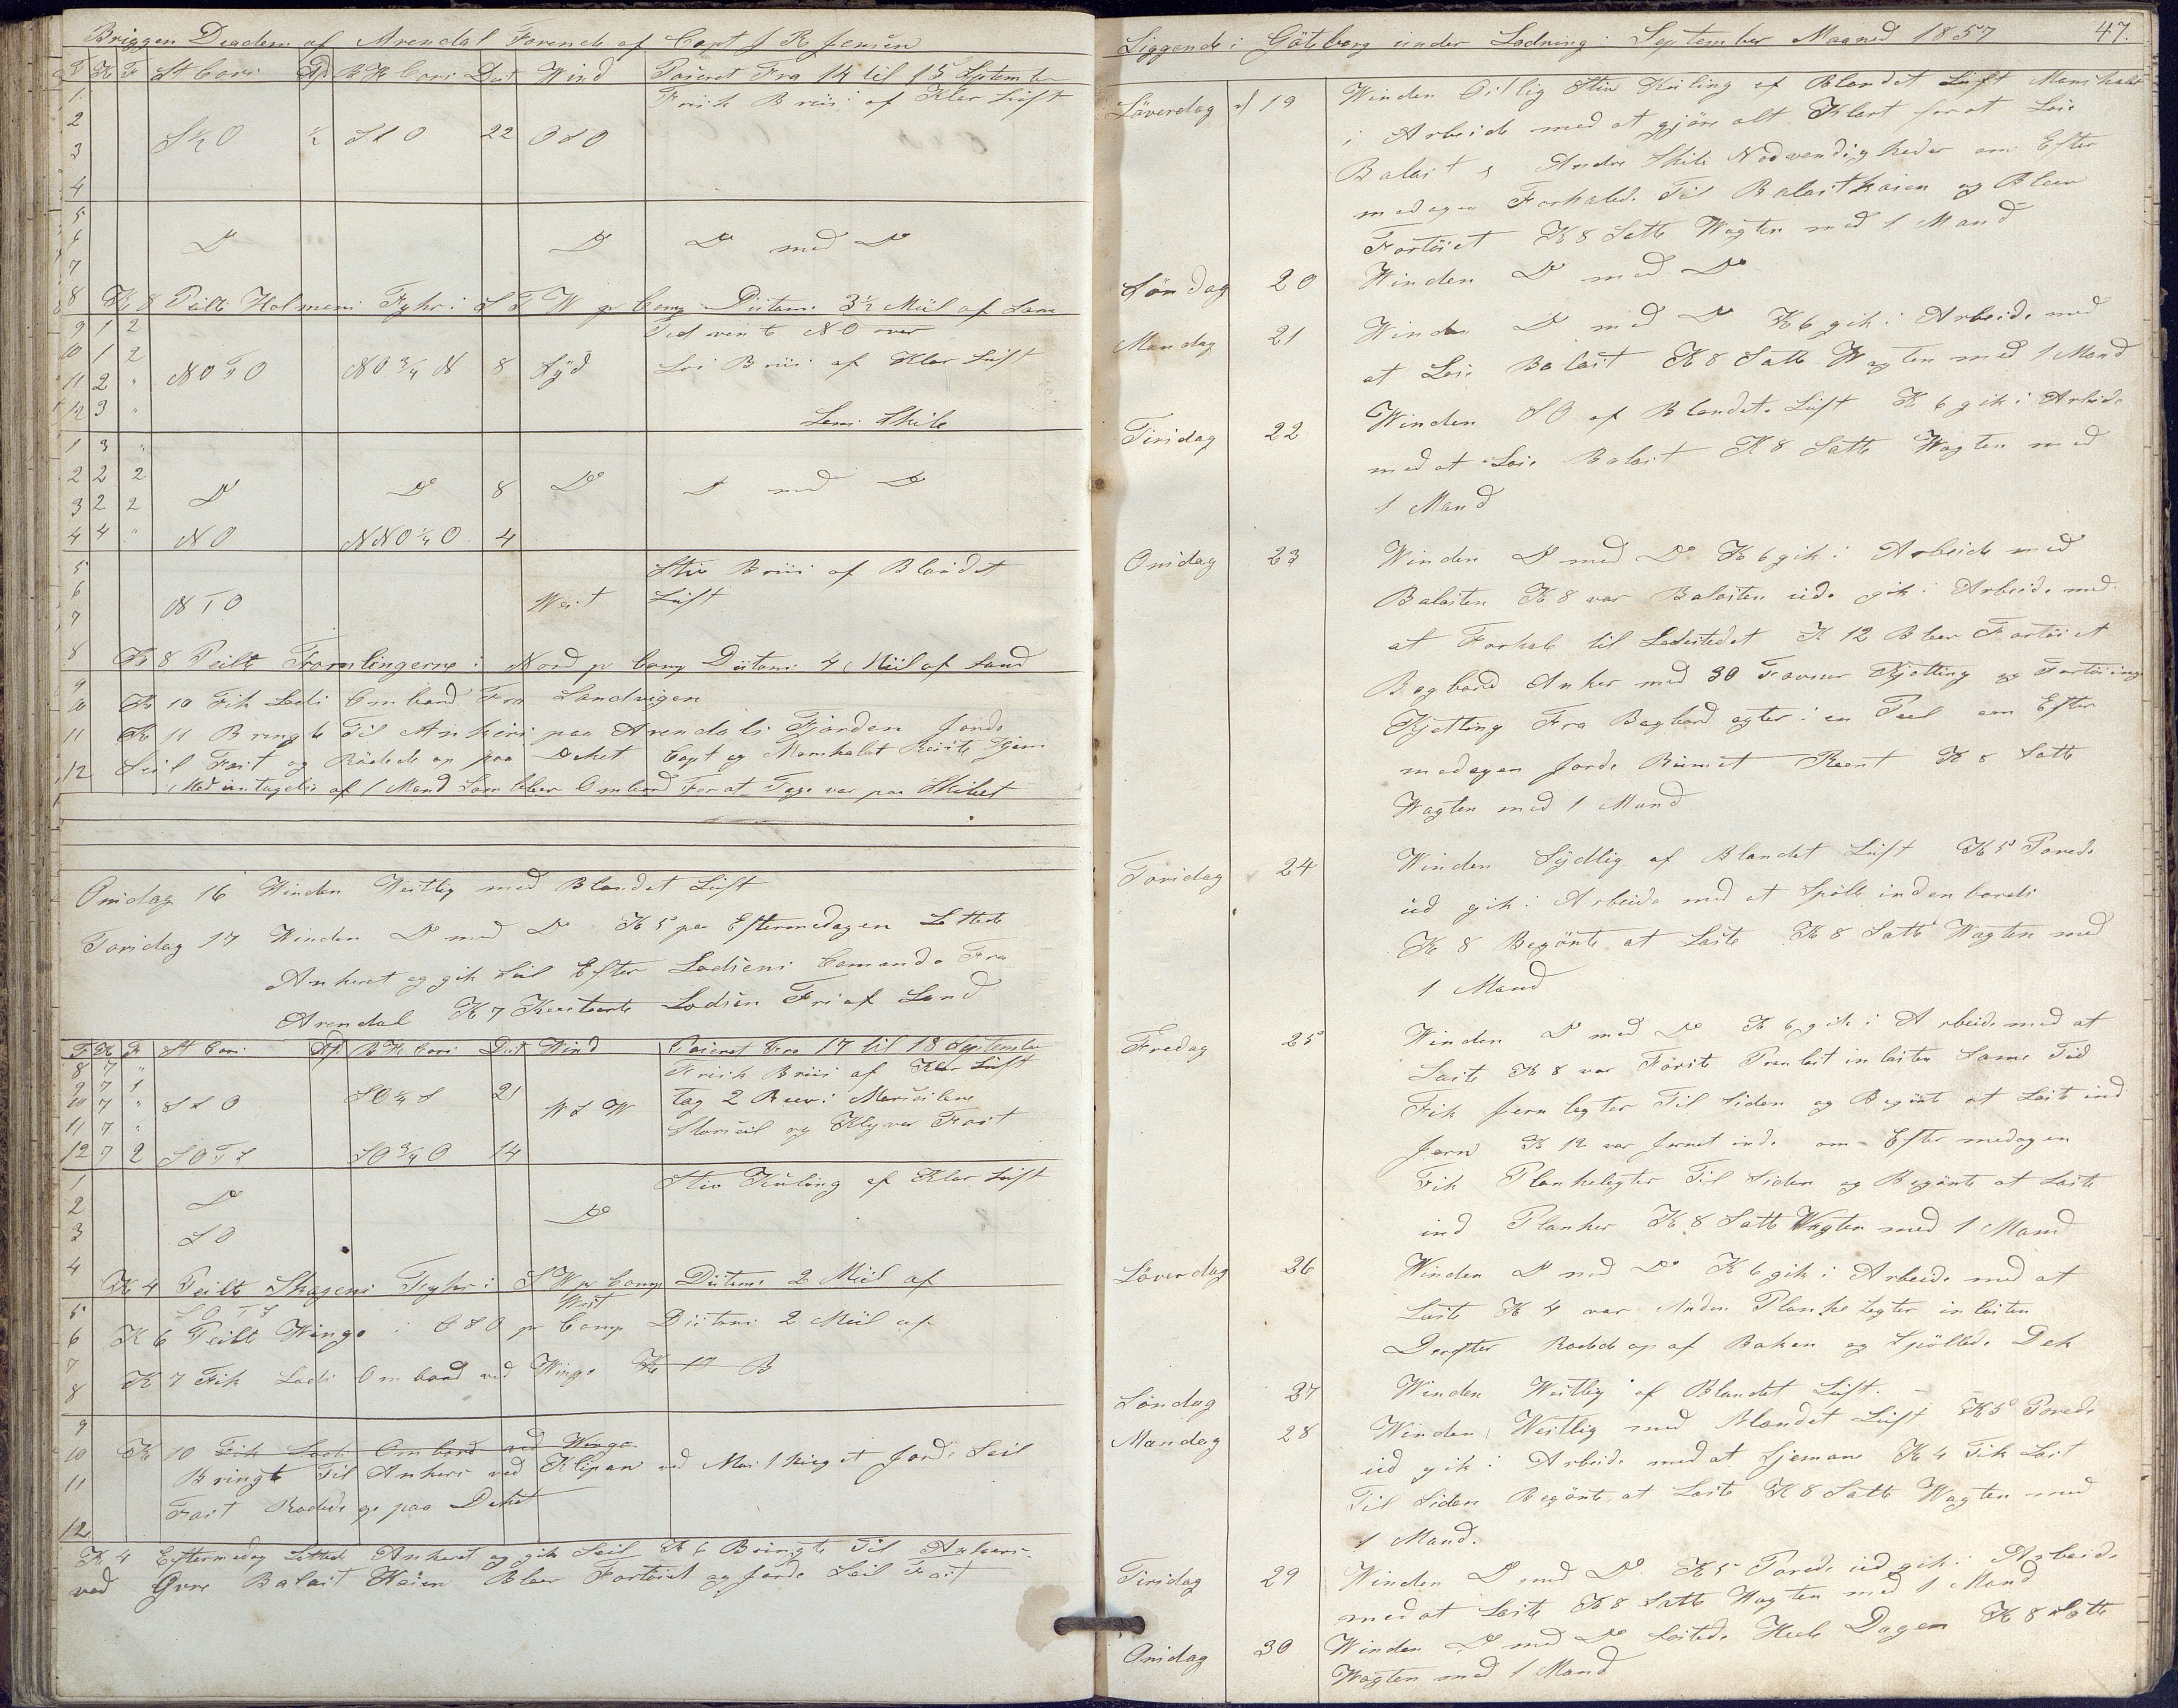 Briggen Deadem af Arendal Förende af Capt J R Jensen
T K F St Cors Af B H Cors Dist Wind Paseret Fra 14 til 15 September
1 Frisk Briis af Klar Luft
2
3 S½O ½ StO 22 OSO
4
5
6 Do Do Do med Do
7
8 K 8 Peilte Holmens Fyhr i S T W pr Comp Distans 3½ Miil af Som
9 1 2 Tid vente NO over
10 1 2
11 2 " NOTO NO¾N 8 Syd Lös Briis af Klar Luft
12 3 " Lens Skib
1 3 "
2 2 2
3 2 2 Do Do 8 Do Do med Do
4 4 " NO NNO¼O 4
5 Stiv Briis af Blandet
6
7 NTO West Luft
8 K 8 Peilte Tromlingerne i Nord pr Comp Distans 4 Miil af Land
9
10 K 10 Fik Lods Ombord Fra Sandvigen
11 K 11 Bringte Til Ankers paa Arendals Fjorden Jorde
12 Seil Fast og Rödede op paa Deket Capt og Manskabet Reiste hjem
Med untagelse af 1 Mand Som blev Ombord For at Tage var paa Skibet
Onsdag 16 Winden Westlig med Blandet Luft
Torsdag 17 Winden Do med Do K 5 pa Eftermedagen Lettede
Ankeret og gik Seil Efter Lodsens Comando Fra
Arendal K 7 Kviterte Lodsen Fri af Land
T K F St Cors Af B H Cors Dist Wind Paseret Fra 17 til 18 September
8 7 " Frisk Briis af Klar Luft
9 7 1 SO¼S 21 Tog 2 Reev i Merseilene
10 7 " SSO WSW
11 7 " Storseil og Klyver Fast
12 7 2 SOTS SO¾O 14
1 Stiv Kuling af Klar Luft
2 Do Do
3 SO
4 K 4 Peilte Skagens Fyhr i SW pr Comp Distans 2 Miil af
5 SOTS West
6 K 6 Peilte Wingo i OSO pr Comp Distans 2 Miil af
7 K 7 Fik Lods Ombord ved Wingo K 10 B
8
9
10 K 10 Fik Lods Ombord ved Wingo
11 Bringte Til Ankers ved Klipan ved Mas Jorde Seil
Fast Rodede op paa Deket
12
K 4 Eftermedag Lettede Ankeret og gik Seil K 6 Bringte Til Ankers
ved Balast Kaien Blev Fortöiet og Jorde Seil Fast
Liggende i Göteborg under Ladning i September Maaned 1857 47.
Löverdag d 19 Winden Östlig Stiv Kuling af Blandet Luft Manskabet
i Arbeide med at gjöre alt Klart for at Lose
Balast og Andre Skibs Nödvendigheder om Efter
medagen Forhalede Til Balastkaien og Bleev
Fortöiet K 8 Satte Wagten med 1 Mand
Söndag 20 Winden Do med Do
Mandag 21 Winden Do med Do K 6 gik i Arbeide med
at Lose Balast K 8 Satte Wagten med 1 Mand
Tirsdag 22 Winden SO af Blandet Luft K 6 gik i Arbeide
med at Lose Balast K 8 Satte Wagten med
1 Mand
Onsdag 23 Winden Do med Do K 6 gik i Arbeide med
Balasten K 8 var Balasten ude gik i Arbeide med
at Forhale til Ladestedet K 12 Bleev Fortöiet
Bagbord Anker med 30 Favner Kjetting og Fortöinings
Kjetting Fra Bagbord agter i en Peel om Efter
medagen Jorde Rumet Reent K 8 Satte
Wagten med 1 Mand
Torsdag 24 Winden Sydlig af Blandet Luft K 5 Porede
ud gik i Arbeide med at Spöle indenbords
K 8 Begönte at Laste K 8 Satte Wagten med
1 Mand
Fredag 25 Winden Do med Do K 6 gik i Arbeide med at
Laste K 8 var Förste Pramlast inlasten Same Tid
Fik Jern legter Til Siden og Begönte at Laste ind
Jern K 12 var Jernet inde om Efter medagen
Fik Plankelegter Til Siden og Begönte at Laste
ind Planker K 8 Satte Wagten med 1 Mand
Löverdag 26 Winden Do med Do K 6 gik i Arbeide med at
Laste K 4 var Anden Planke Legter inlasten
Derefter Rodede op af Baken og Spöllede Dek
Söndag 27 Winden Westlig af Blandet Luft
Mandag 28 Winden Westlig med Blandet Luft K 5 Porede
ud gik i Arbeide med at K 4 Fik Last
Til Siden Begönte at Laste K 8 Satte Wagten med
1 Mand.
Tirsdag 29 Winden Do med Do K 5 Porede ud gik i Arbeide
med at Laste K 8 Satte Wagten med 1 Mand
Onsdag 30 Winden Do med Do Lastede Heele Dagen K 8 Satte
Wagten med 1 Mand